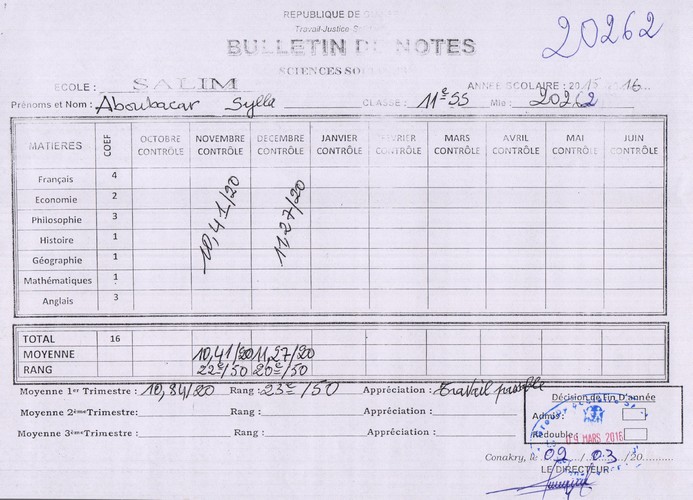 REPUBLIQUE DE
20262
Travail-Justice-
BULLETIN DE NOTES
SCIENCES
ECOLE : SALIM ANNEE SCOLAIRE : 2015 16
Prénoms et Nom : Aboubacar Sylla CLASSE : 11e SS Mle : 20262
MATIERES COEF OCTOBRE CONTRÔLE NOVEMBRE CONTRÔLE DECEMBRE CONTRÔLE JANVIER CONTRÔLE FEVRIER CONTRÔLE MARS CONTRÔLE AVRIL CONTRÔLE MAI CONTRÔLE JUIN CONTRÔLE
Français 4
Economie 2
Philosophie 3
Histoire 1
Géographie 1
Mathématiques 1
Anglais 3
10,41/20 11,27/20
TOTAL 16
MOYENNE 10,41/20 11,27/20
RANG 22e/50 20e/50
Moyenne 1er Trimestre : 10,84/20 Rang : 23e/50 Appréciation : Travail passable
Moyenne 2ème Trimestre: Rang : Appréciation :
Moyenne 3ème Trimestre: Rang : Appréciation :
Décision de Fin D'année
Admis:
Redouble :
09 MARS 2016
Conakry, le 09 / 03 /20
LE DIRECTEUR